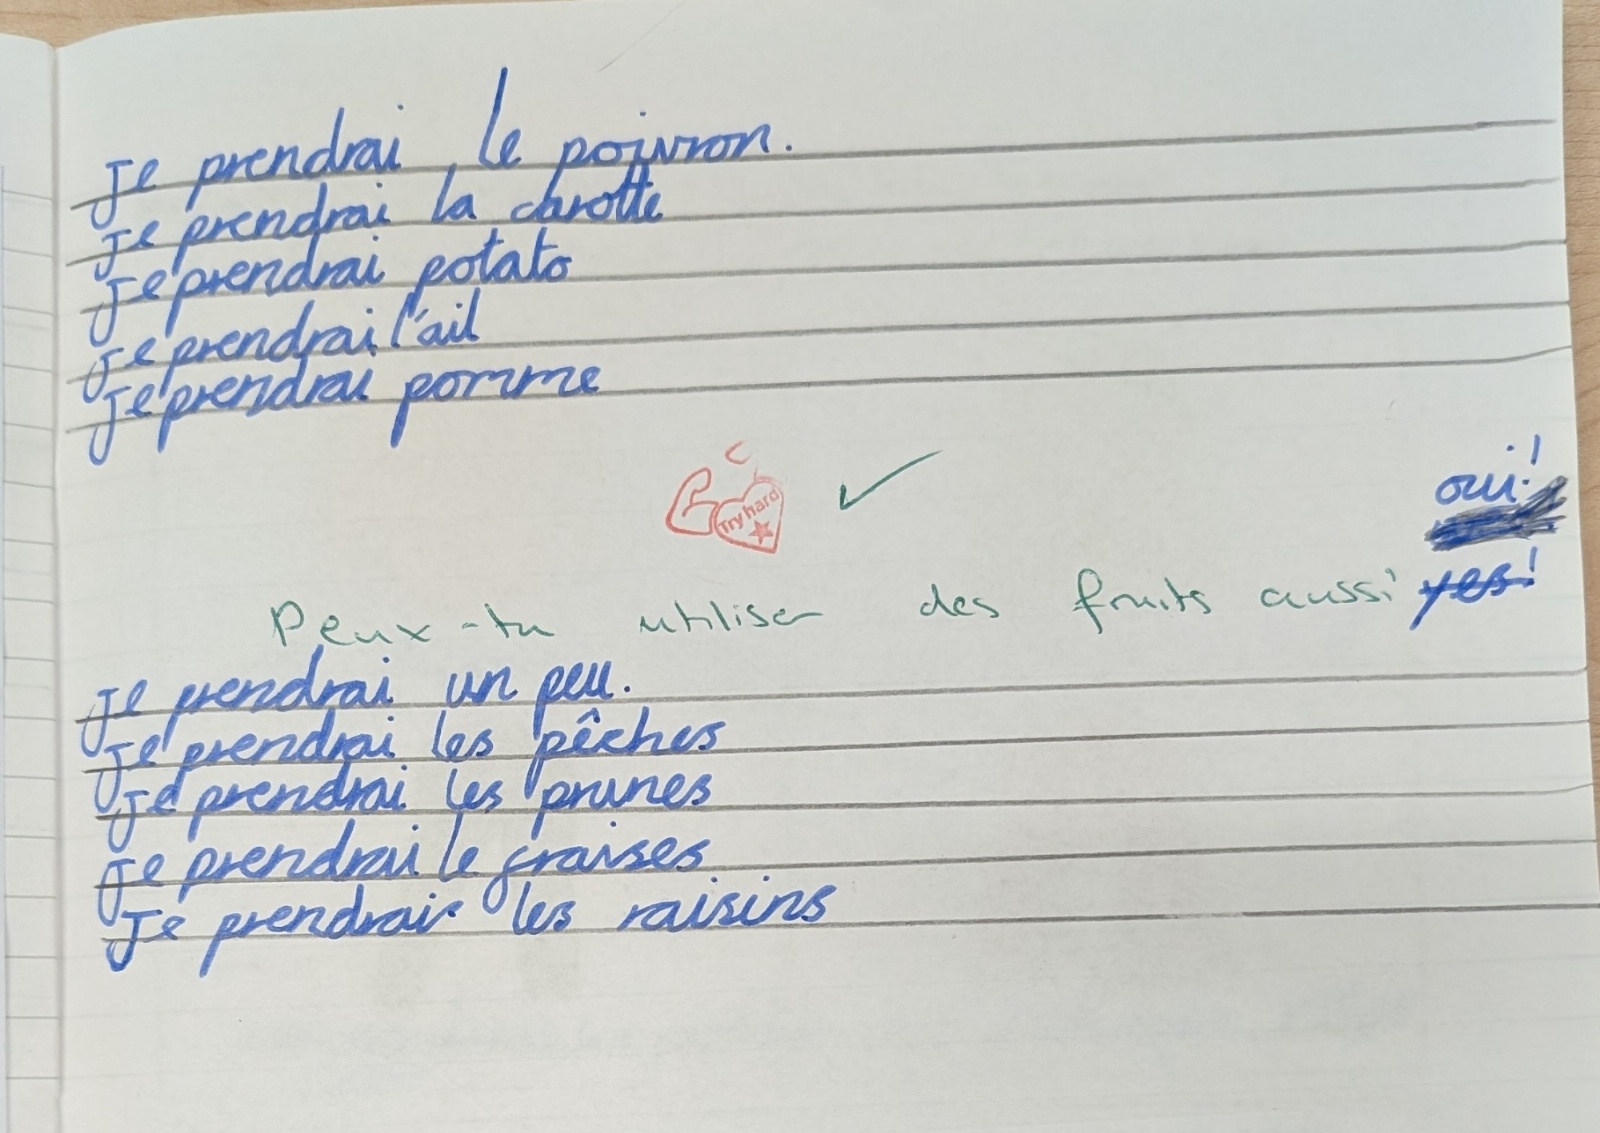 Je prendrai le poivron.
Je prendrai la carotte
Je prendrai potato
Je prendrai l'ail
Je prendrai pomme
Try hard
oui!
yes!
Peux-tu utiliser des fruits aussi
Je prendrai un peu.
Je prendrai les pêches
Je prendrai les prunes
Je prendrai le fraises
Je prendrai les raisins